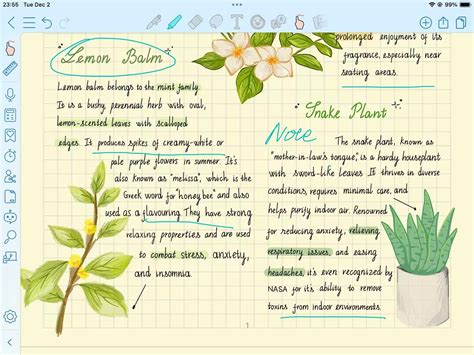 23:55 Tue Dec 2
99%
Lemon Balm
Lemon balm belongs to the mint family.
It is a bushy, perennial herb with oval,
lemon-scented leaves with scalloped
edges. It produces spikes of creamy-white or
pale purple flowers in summer. It's
also known as "melissa", which is the
Greek word for "honey bee" and also
used as a flavouring. They have strong
relaxing properties and are used
to combat stress, anxiety,
and insomnia.
prolonged enjoyment of its
fragrance, especially near
seating areas.
Snake Plant
Note
The snake plant, known as
"mother-in-law's tongue", is a hardy houseplant
with sword-like leaves. It thrives in diverse
conditions, requires minimal care, and
helps purify indoor air. Renowned
for reducing anxiety, relieving
respiratory issues, and easing
headaches, it's even recognized by
NASA for it's ability to remove
toxins from indoor environments.
1